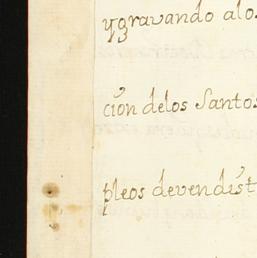 y gravando alos
ción delos Santos
pleos devendist